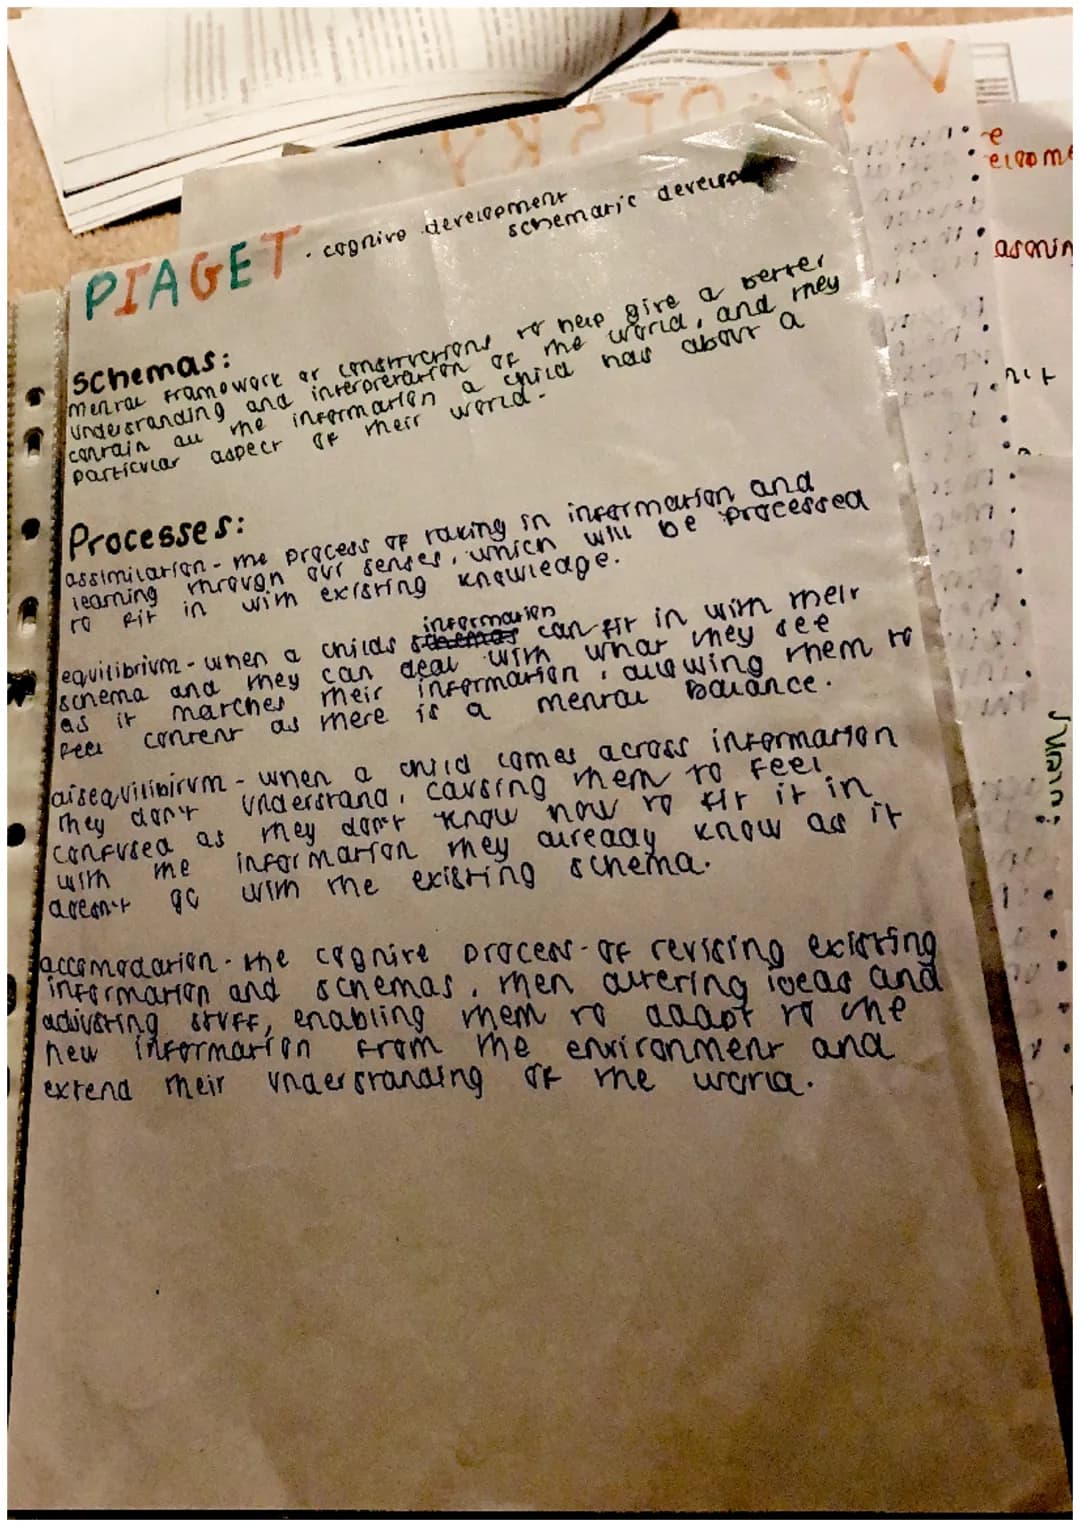 PIAGET. cognive development
schematic
schemas:
mental framework or constructions to help give a better
understanding and interpretation of the world, and they
contain all the information a child has about a
particular aspect of their world.
Processes:
assimilation - the process of taking in information and
learning through our senses, which will be processed
to fit in with existing knowledge.
information
equilibrium - when a childs can fit in with their
schema and they can deal with what they see
as it matches their information, allowing them to
feel content as there is a mental balance.
disequilibirum - when a child comes across information
they don't understand, causing them to feel
confused as they don't know how to fit it in
with the information they already know as it
doesn't go with the existing schema.
accomodation - the cognitve process of revising existing
information and schemas, then altering ideas and
adjusting stuff, enabling them to adapt to the
new information from the environment and
extend their understanding of the world.